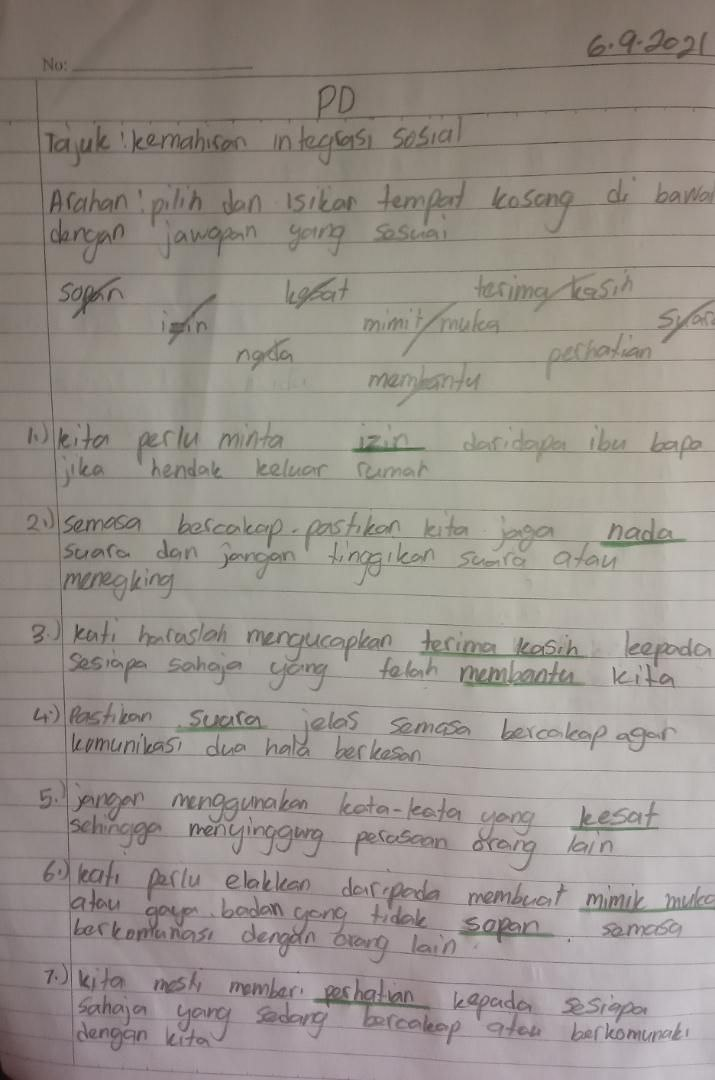 6.9.2021
No:
PD
Tajuk : kemahiran integrasi sosial
Arahan : pilih dan isikan tempat kosong di bawa
dengan jawapan yang sesuai
sopan kesat terima kasih
izin mimit muka suara
nada perhatian
membantu
1.) kita perlu minta izin daridapa ibu bapa
jika hendak keluar rumah
2.) semasa bercakap. pastikan kita jaga nada
suara dan jangan tinggikan suara atau
menegking
3.) kati haruslah mengucapkan terima kasih kepada
sesiapa sahaja yang telah membantu kita
4.) Pastikan suara jelas semasa bercakap agar
komunikasi dua hala berkesan
5.) jangan menggunakan kata-kata yang kesat
sehingga menyinggung perasaan orang lain
6.) kati perlu elakkan daripada membuat mimik muka
atau gaya badan yang tidak sopan. semasa
berkomunasi dengan orang lain.
7.) kita meski memberi perhatian kepada sesiapa
sahaja yang sedang bercakap atau berkomunaki
dengan kita